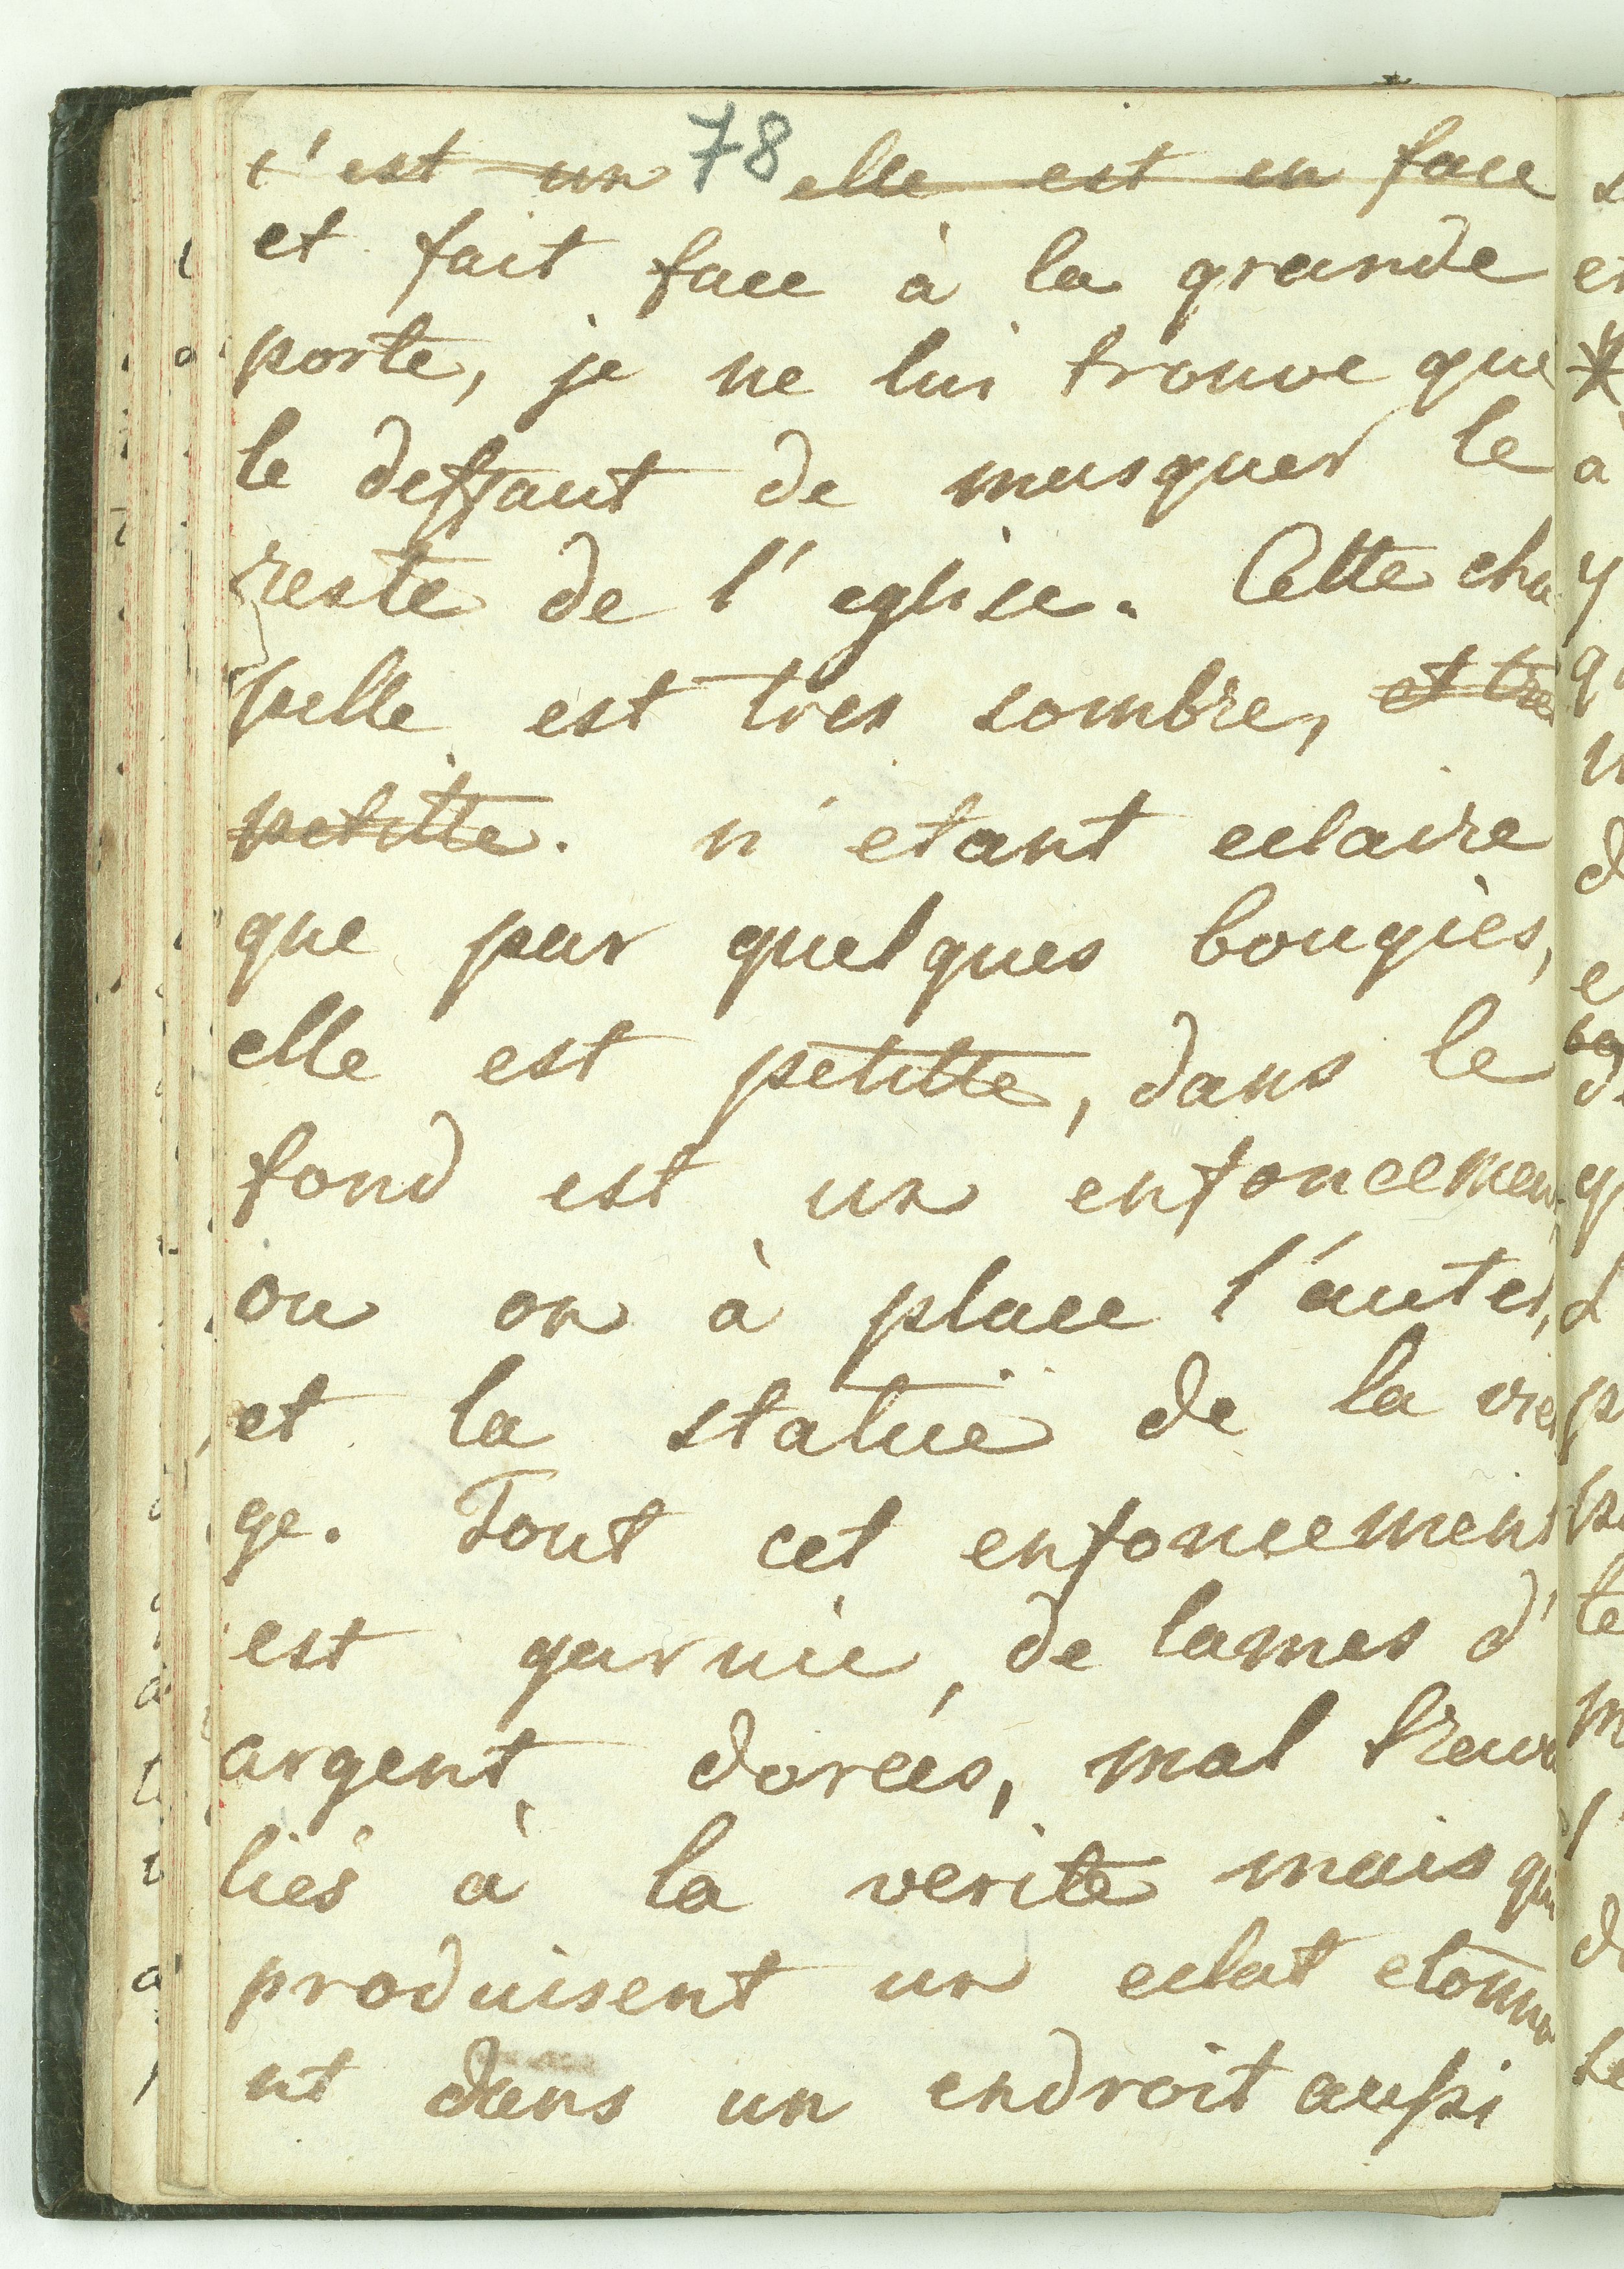 78
c'est un elle est en face
et fait face à la grande
porte, je ne lui trouve que
le deffaut de masquer le
reste de l'eglise. Cette cha
pelle est tres sombre, et tres
petitte. n'etant eclaire
que par quelques bougiès,
elle est petitte, dans le
fond est un enfoncement
ou on à place l'autel,
et la statüe de la vier
ge. Tout cet enfoncement
est garnie, de lames d'
argent, dorées, mal trava
liés à la verite mais qui
produisent un eclat etonna
nt dans un endroit aussi